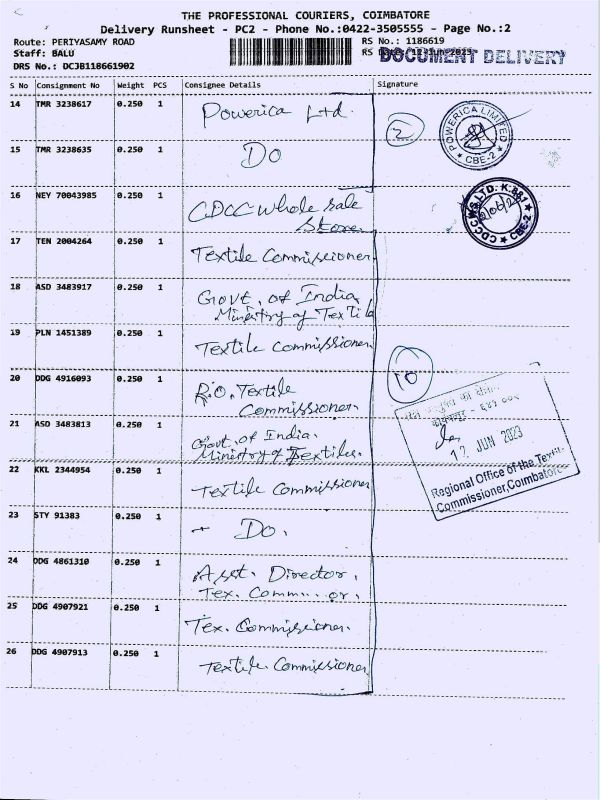 THE PROFESSIONAL COURIERS, COIMBATORE
Delivery Runsheet - PC2 - Phone No.:0422-3505555 - Page No.:2
Route: PERIYASAMY ROAD
RS No.: 1186619
Staff: BALU
RS Date: 12-Jun-2023
DOCUMENT DELIVERY
DRS No.: DCJB118661902
S No Consignment No Weight PCS Consignee Details Signature
14 TMR 3238617 0.250 1 Powerica Ltd.
2
POWERICA LIMITED CBE-2
15 TMR 3238635 0.250 1 Do
16 NEY 70043985 0.250 1 CDCC whole sale
Store
CDCCWS LTD. K.881 CBE-2
17 TEN 2004264 0.250 1 Textile Commissioner
18 ASD 3483917 0.250 1 Govt. of India
Ministry of Textile
19 PLN 1451389 0.250 1 Textile Commissioner
10
20 DDG 4916093 0.250 1 R.O. Textile
Commissioner.
21 ASD 3483813 0.250 1 Govt. of India.
Ministry of Textiles.
12 JUN 2023
Regional Office of the Textile
Commissioner, Coimbatore
22 KKL 2344954 0.250 1 Textile Commissioner
23 STY 91383 0.250 1 - Do.
24 DDG 4861310 0.250 1 Asst. Director.
Tex. Comm...or.
25 DDG 4907921 0.250 1 Tex. Commissioner.
26 DDG 4907913 0.250 1 Textile Commissioner